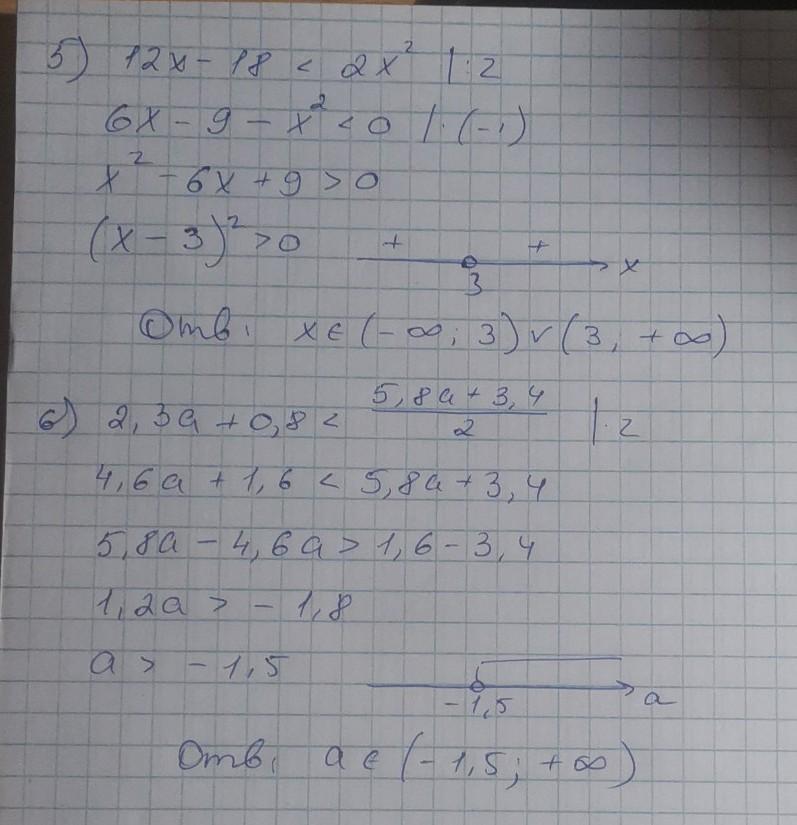 5) 12x - 18 < 2x² |:2
6x - 9 - x² < 0 |·(-1)
x² - 6x + 9 > 0
(x - 3)² > 0 + + 3 x
Отв: x ∈ (-∞; 3) ∨ (3, +∞)
6) 2,3a + 0,8 < (5,8a + 3,4)/2 |·2
4,6a + 1,6 < 5,8a + 3,4
5,8a - 4,6a > 1,6 - 3,4
1,2a > - 1,8
a > - 1,5 -1,5 a
Отв: a ∈ (-1,5; +∞)